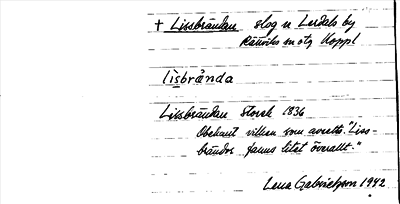 † Lissbrändan skog n Lerdals by
Rättviks sn o tg Koppl
lìsbrånda
Lissbrändan storsk 1836
Obekant vilken som avsetts. "Liss-
brändor fanns litet överallt."
Lena Gabrielsson 1942